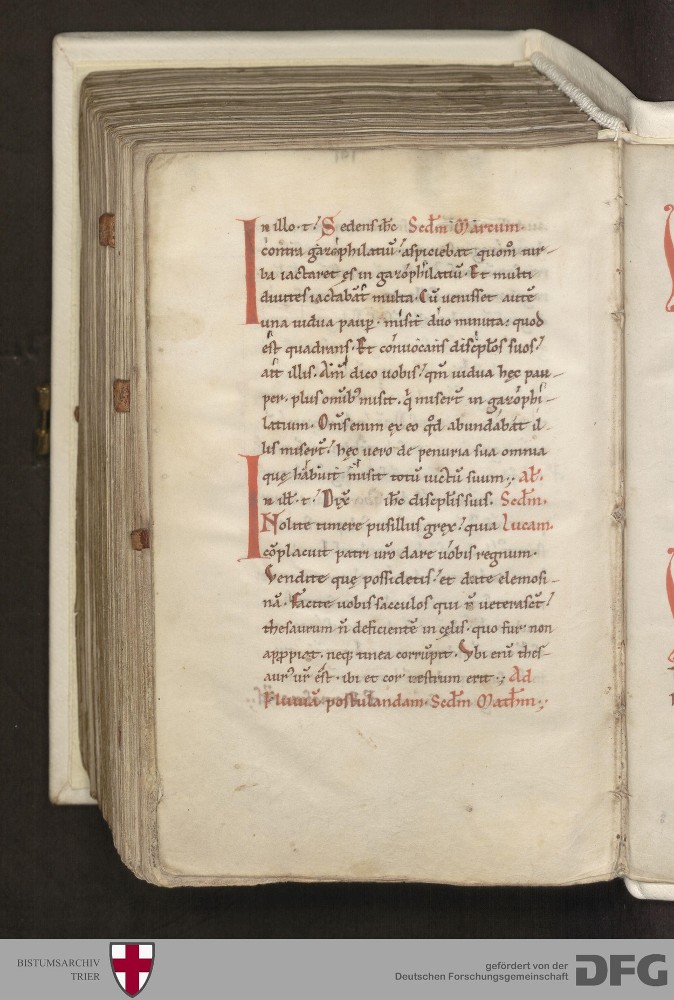 In illo · t · Sedens ihc Secdm Marcum ·
contra gazophilatiu aspiciebat quom tur-
ba iactaret es in gazophilatiu · Et multi
diuites iactabat multa · Cu uenisset aute
una uidua paup · misit duo minuta quod
est quadrans · Et conuocans discplos suos
ait illis · Am dico uobis qm uidua hec pau-
per · plus omib misit · q misert in gazophi-
latium · Oms enim ex eo qd abundabat il-
lis misert hec uero de penuria sua omnia
que habuit misit totu uictu suum · Al ·
In ill · t · Dix ihc discplis suis · Secdm ·
Nolite timere pusillus grex quia Lucam ·
coplacuit patri uro dare uobis regnum ·
Vendite que possidetis et date elemosi-
na · Facite uobis sacculos qui n ueterasct
thesaurum n deficiente in celis · quo fur non
appropiat · neq tinea corrupit · Vbi eni thes-
aur ur est · ibi et cor uestrum erit · Ad
Pluuia postulandam · Secdm Mathm ·
BISTUMSARCHIV
TRIER
gefördert von der
Deutschen Forschungsgemeinschaft
DFG